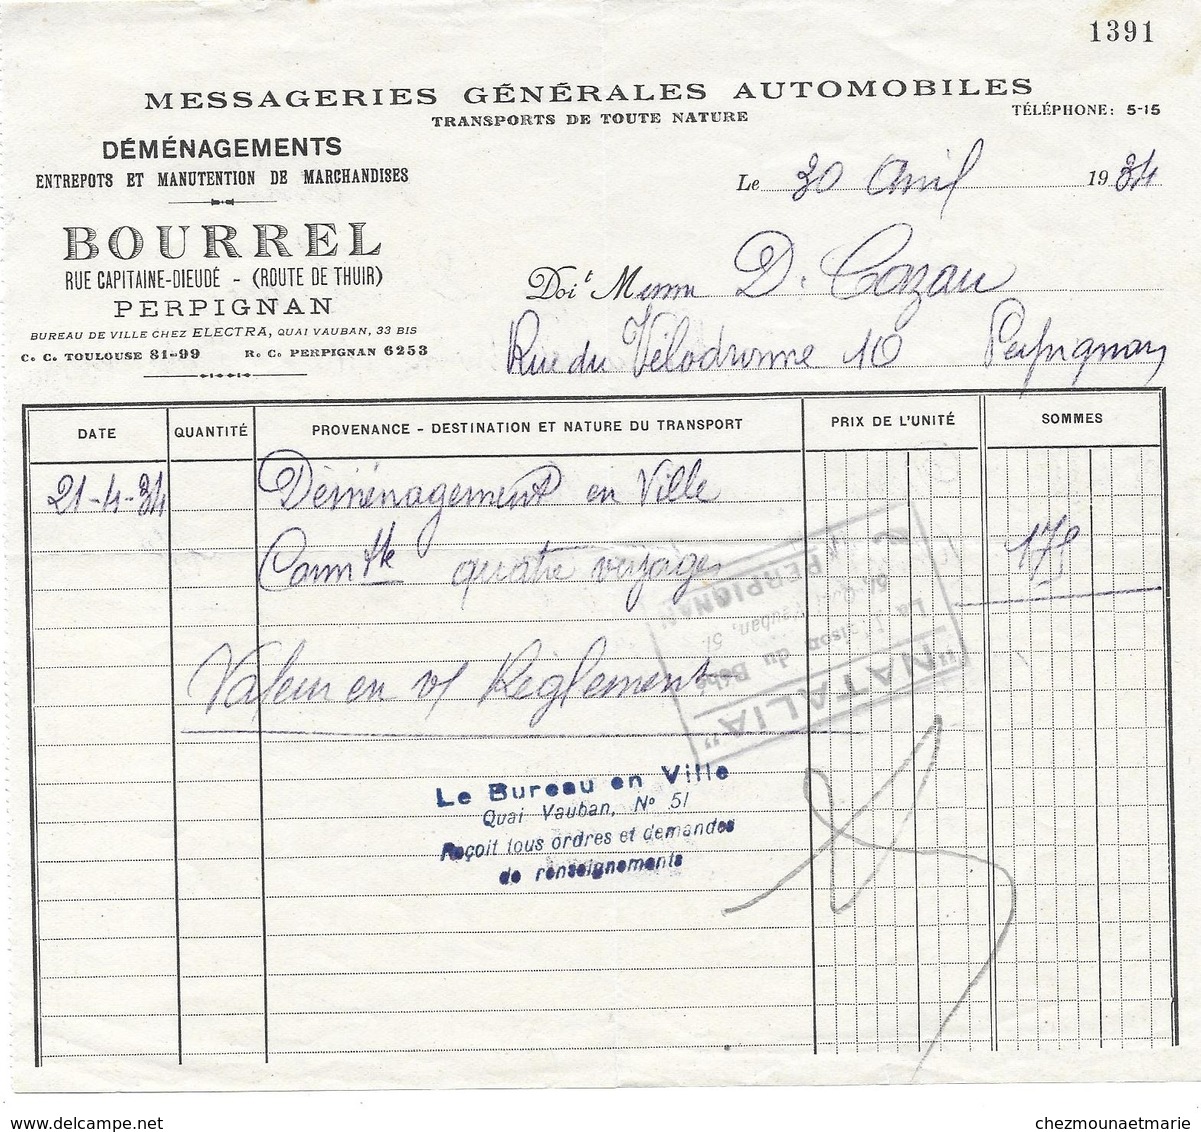 1391
MESSAGERIES GÉNÉRALES AUTOMOBILES
TRANSPORTS DE TOUTE NATURE
TÉLÉPHONE: 5-15
DÉMÉNAGEMENTS
ENTREPOTS ET MANUTENTION DE MARCHANDISES
Le 30 Avril 1934
BOURREL
RUE CAPITAINE-DIEUDÉ - (ROUTE DE THUIR)
PERPIGNAN
BUREAU DE VILLE CHEZ ELECTRA, QUAI VAUBAN, 33 BIS
C. C. TOULOUSE 81-99 R. C. PERPIGNAN 6253
Doit M D. Cazau
Rue du Vélodrome 10 Perpignan
DATE QUANTITÉ PROVENANCE - DESTINATION ET NATURE DU TRANSPORT PRIX DE L'UNITÉ SOMMES
21-4-34 Déménagement en Ville
quatre voyages
Valeur en v/ Règlement
"NATALIA"
La Maison du Bébé
51, Quai Vauban, 51
PERPIGNAN
Le Bureau en Ville
Quai Vauban, N° 51
Reçoit tous ordres et demandes
de renseignements
delcampe.net
chezmounaetmarie